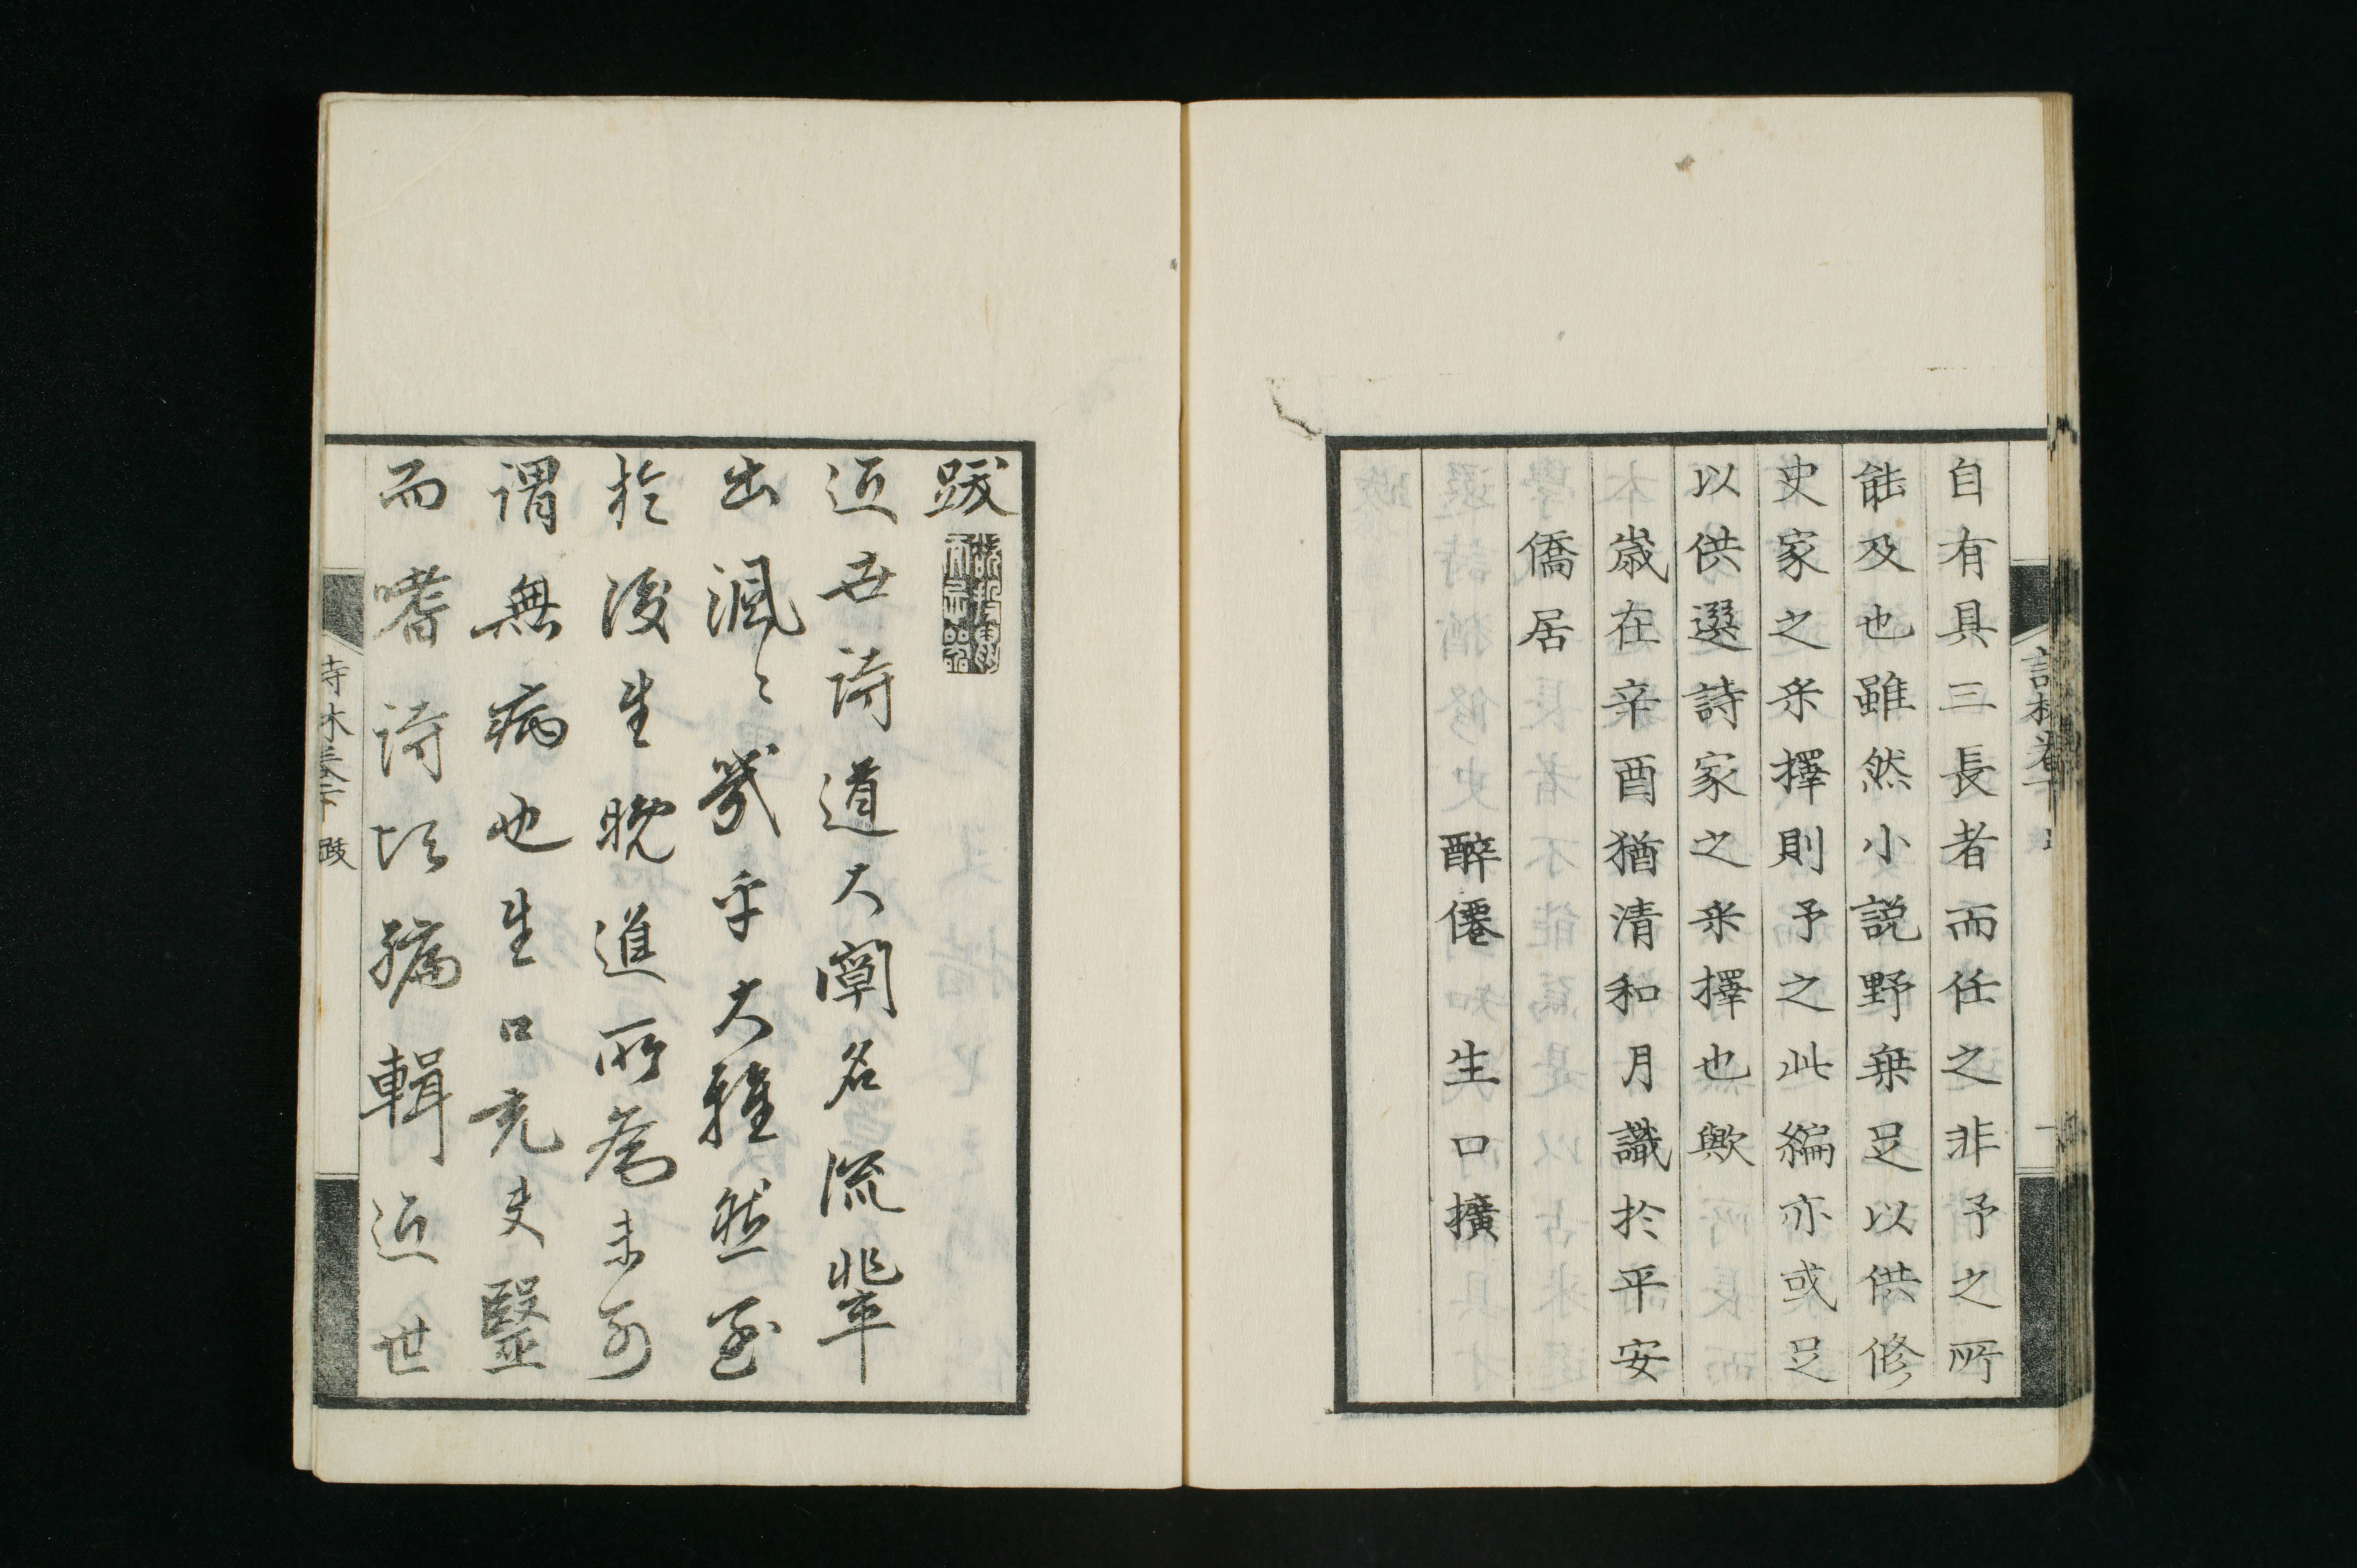 自有具三長者而任之非予之所
能及也雖然小説野乗足以供修
史家之采擇則予之此編亦或足
以供選詩家之采擇也歟
歳在辛酉猶清和月識於平安
僑居
醉僊 生口擴
跋
近世詩道大闡名流輩
出渢〻 幾乎大雅然至
於後生晩進所為未可
謂無病也生口充夫毉
而嗜詩 編輯近世